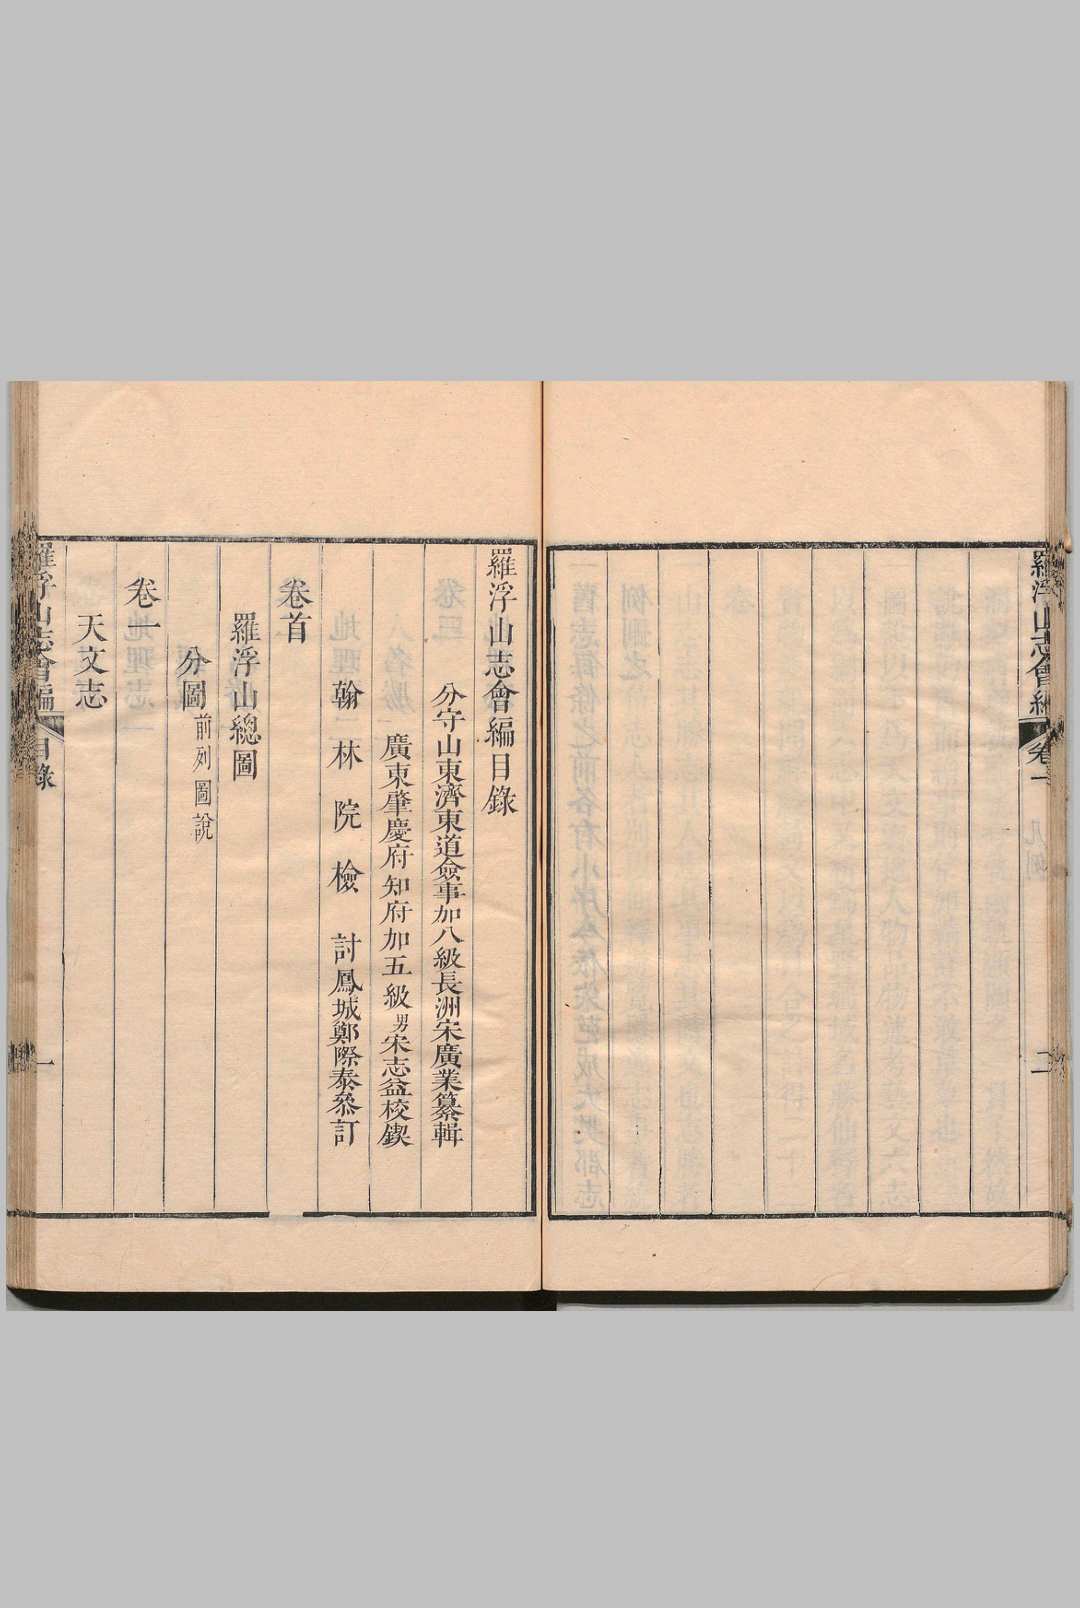 羅浮山志會編
卷一
凡例
二
羅浮山志會編目錄
分守山東濟東道僉事加八級長洲宋廣業纂輯
廣東肇慶府知府加五級男宋志益校鐭
翰林院檢討鳳城鄭際泰叅訂
卷首
羅浮山總圖
分圖前列圖說
卷一
天文志
羅浮山志會編
目錄
一